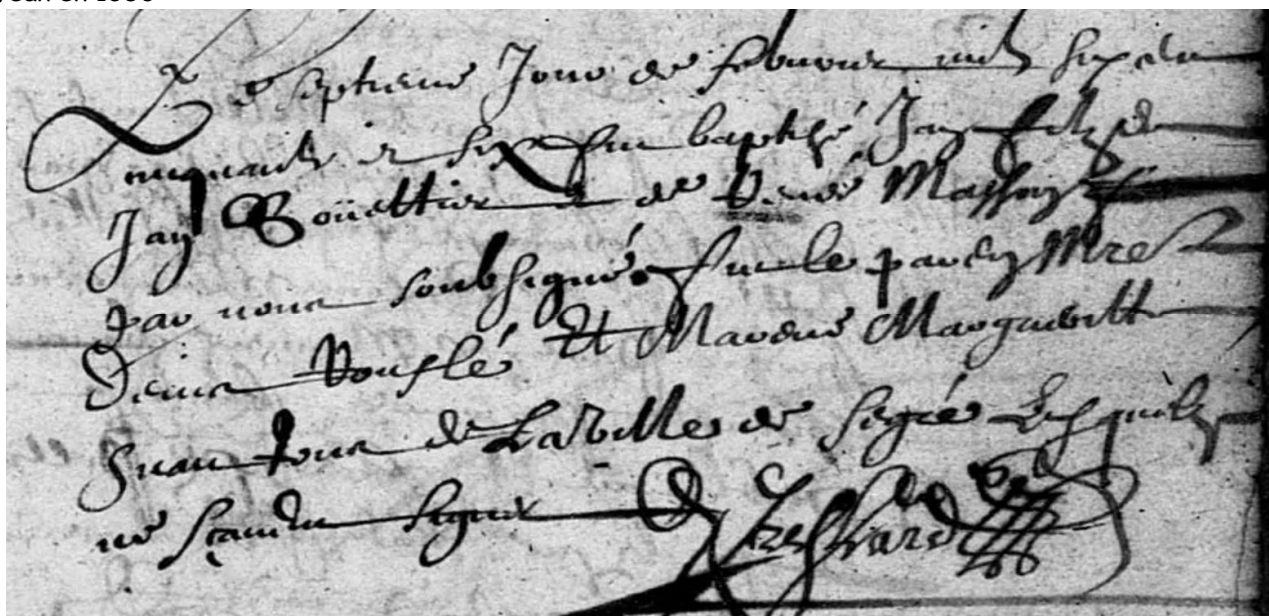 Le septieme Jour de febvrier mil six cens
cinquante et six fut baptisé Jan filz de
Jan Boüettier et de Renée Masson
par nous soubsigné fut le parein Mre
Denis Rouflé Et Mareine Margueritte
tous de La Ville de Segré Lesquelz
ne scavent signer